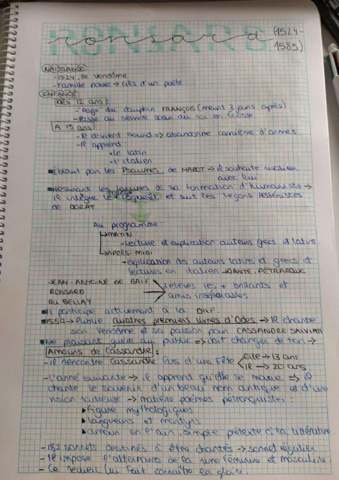 ronsard (1524-
1585)
NAISSANCE
-1524, le vendôme
-Famille noble → fils d'un poète
ENFANCE
dès 12 ans:
-Page du dauphin FRANÇOIS (meurt 3 jours après)
-Page du
A 15 ans
-Il devient sourd → abandonne carrière d'armes
-Il apprend
•Le latin
•L'italien
par les Psaumes de MAROT → Il souhaite
avec lui
de sa formation d'humaniste →
Il intègre le et suit les leçons
de DORAT
Au programme:
MATIN
-Lecture et explication auteurs grecs et latins
APRÈS-MIDI
-explication des auteurs latins et grecs et
lectures en italien → DANTE, PETRARQUE
JEAN-ANTOINE DE BAÏF
RONSARD
DU BELLAY
élèves les + brillants et
amis inséparables
Il participe activement à la
→ Publie quatre premiers livres d'Odes → Il chante
son Vendômois et sa passion pour CASSANDRE SALVIATI
Ne plaisant guère au public → doit changer de ton →
Amours de Cassandre:
-Il rencontre Cassandre lors d'une fête
Elle → 13 ans
Il → 20 ans
-L'année suivante → il apprend qu'elle se marie → il
chante le souvenir d'un beau nom antique et d'une
vision radieuse → matière poèmes pétrarquistes:
Figure mythologiques
Langueurs et martyrs
amour en l'air, simple prétexte à la littérature
-182 sonnets destinés à être chantés → sonnet régulier
-Il impose l'alternance de la rime féminine et masculine
-Ce recueil lui fait connaître la gloire.